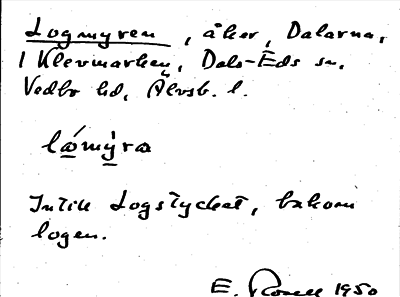 Logmyren, åker, Dalarna,
i Klevmarken, Dals-Eds sn,
Vedbo hd, Älvsb. l.
ló̲mỳ̲ra
Intill Logstycket, bakom
logen.
E. Rosell 1950